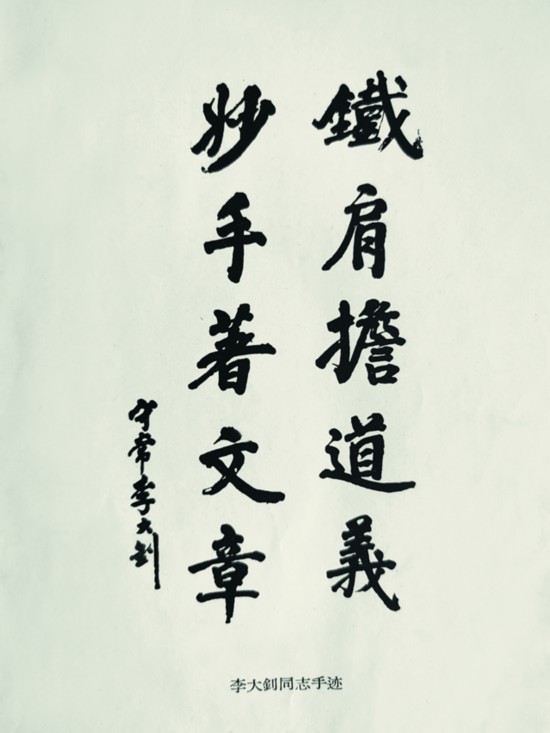 鐵肩擔道義
妙手著文章
守常李大釗
李大釗同志手迹